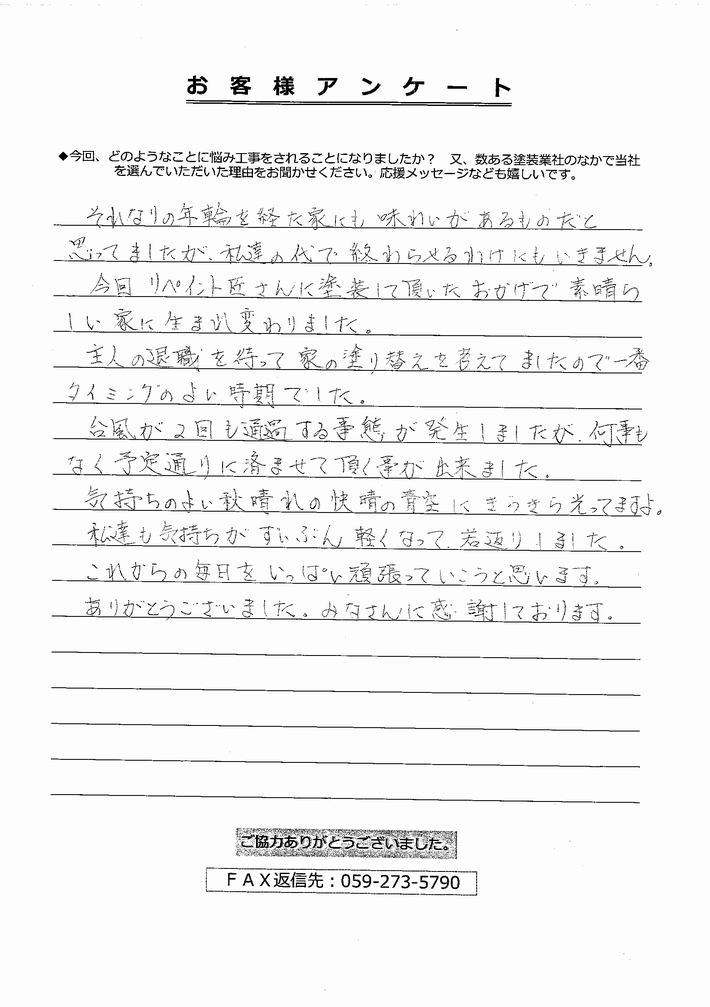 お客様アンケート
◆今回、どのようなことに悩み工事をされることになりましたか？　又、数ある塗装業社のなかで当社
を選んでいただいた理由をお聞かせください。応援メッセージなども嬉しいです。
それなりの年輪を経た家にも味わいがあるものだと
思ってましたが、私達の代で終わらせるわけにもいきません。
今回リペイント匠さんに塗装して頂いたおかげで素晴ら
しい家に生まれ変わりました。
主人の退職を待って家の塗り替えを考えてましたので一番
タイミングのよい時期でした。
台風が2回も通過する事態が発生しましたが、何事も
なく予定通りに済ませて頂く事が出来ました。
気持ちのよい秋晴れの快晴の青空にきらきら光ってますよ。
私達も気持ちがずいぶん軽くなって、若返りしました。
これからの毎日をいっぱい頑張っていこうと思います。
ありがとうございました。みなさんに感謝しております。
ご協力ありがとうございました。
ＦＡＸ返信先：059-273-5790